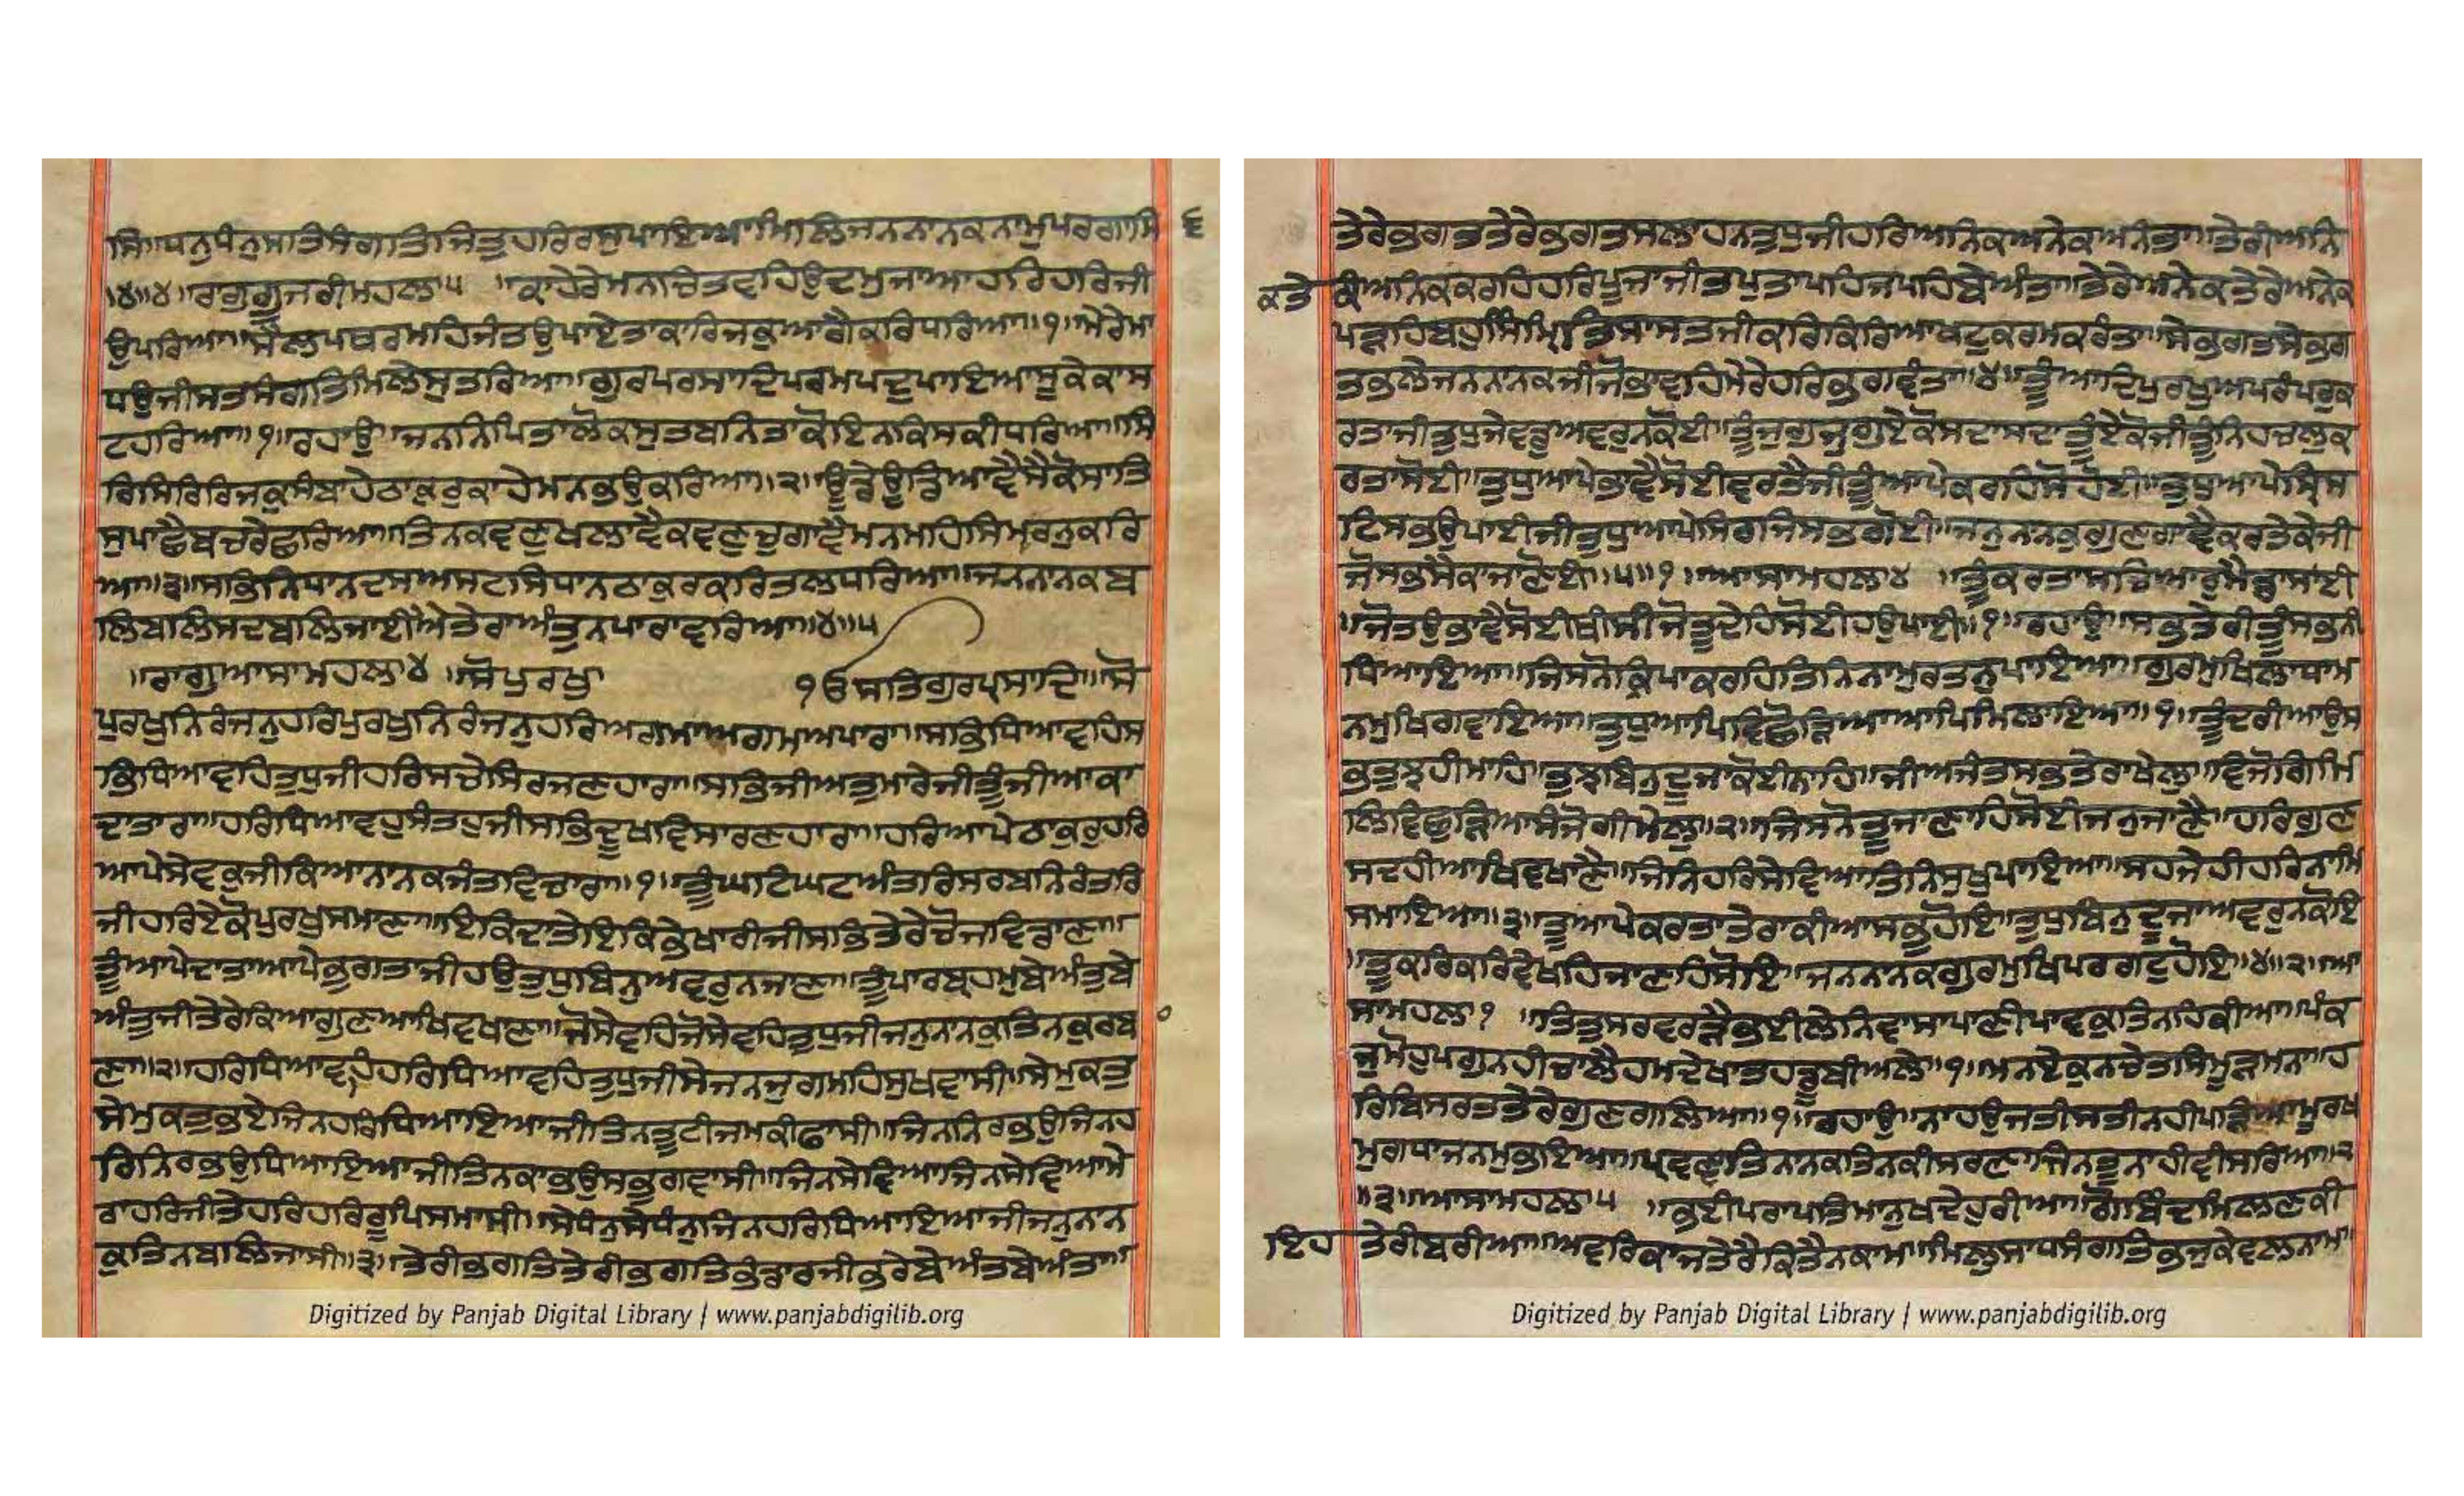 ਸਿ॥ਧਨੁਧੰਨੁਸਤਿਸੰਗਤਿਜਿਤੁਹਰਿਰਸੁਪਾਇਆਮਿਲਿਜਨਨਾਨਕਨਾਮੁਪਰਗਾਸਿ
੬
॥੪॥੪॥ਰਾਗੁਗੂਜਰੀਮਹਲਾ੫ ॥ਕਾਹੇਰੇਮਨਚਿਤਵਹਿਉਦਮੁਜਾਆਹਰਿਹਰਿਜੀ
ਉਪਰਿਆ॥ਸੈਲਪਥਰਮਹਿਜੰਤਉਪਾਏਤਾਕਾਰਿਜਕੁਆਗੈਕਰਿਧਰਿਆ॥੧॥ਮੇਰੇਮਾ
ਧਉਜੀਸਤਸੰਗਤਿਮਿਲੇਸੁਤਰਿਆ॥ਗੁਰਪਰਸਾਦਿਪਰਮਪਦੁਪਾਇਆਸੂਕੇਕਾਸ
ਟਹਰਿਆ॥੧॥ਰਹਾਉ॥ਜਨਨਿਪਿਤਾਲੋਕਸੁਤਬਨਿਤਾਕੋਇਨਕਿਸਕੀਧਰਿਆ॥ਸਿ
ਰਿਸਿਰਿਰਿਜਕੁਸੰਬਾਹੇਠਾਕੁਰੁਕਾਹੇਮਨਭਉਕਰਿਆ॥੨॥ਊਡੇਊਡਿਆਵੈਸੈਕੋਸਾਤਿ
ਸੁਪਾਛੈਬਚਰੇਛਰਿਆ॥ਤਿਨਕਵਣੁਖਲਾਵੈਕਵਣੁਚੁਗਾਵੈਮਨਮਹਿਸਿਮਰਨੁਕਰਿ
ਆ॥੩॥ਸਭਿਨਿਧਾਨਦਸਅਸਟਸਿਧਾਨਠਾਕੁਰਕਰਿਤਲਧਰਿਆ॥ਜਨਨਾਨਕਬ
ਲਿਬਲਿਸਦਬਲਿਜਾਈਐਤੇਰਾਅੰਤੁਨਪਾਰਾਵਰਿਆ॥੪॥੫
॥ਰਾਗੁਆਸਾਮਹਲਾ੪ ॥ਸੋਪੁਰਖੁ ੴਸਤਿਗੁਰਪ੍ਰਸਾਦਿ॥ਸੋ
ਪੁਰਖੁਨਿਰੰਜਨੁਹਰਿਪੁਰਖੁਨਿਰੰਜਨੁਹਰਿਅਗਮਾਅਗਮਅਪਾਰਾ॥ਸਭਿਧਿਆਵਹਿਸ
ਭਿਧਿਆਵਹਿਤੁਧੁਜੀਹਰਿਸਚੇਸਿਰਜਣਹਾਰਾ॥ਸਭਿਜੀਅਤੁਮਾਰੇਜੀਤੂੰਜੀਆਕਾ
ਦਾਤਾਰਾ॥ਹਰਿਧਿਆਵਹੁਸੰਤਹੁਜੀਸਭਿਦੂਖਵਿਸਾਰਣਹਾਰਾ॥ਹਰਿਆਪੇਠਾਕੁਰੁਹਰਿ
ਆਪੇਸੇਵਕੁਜੀਕਿਆਨਾਨਕਜੰਤਵਿਚਾਰਾ॥੧॥ਤੂੰਘਟਿਘਟਅੰਤਰਿਸਰਬਨਿਰੰਤਰਿ
ਜੀਹਰਿਏਕੋਪੁਰਖੁਸਮਾਣਾ॥ਇਕਿਦਾਤੇਇਕਿਭੇਖਾਰੀਜੀਸਭਿਤੇਰੇਚੋਜਵਿਡਾਣਾ॥
ਤੂੰਆਪੇਦਾਤਾਆਪੇਭੁਗਤਾਜੀਹਉਤੁਧੁਬਿਨੁਅਵਰੁਨਜਾਣਾ॥ਤੂੰਪਾਰਬ੍ਰਹਮੁਬੇਅੰਤੁਬੇ
ਅੰਤੁਜੀਤੇਰੇਕਿਆਗੁਣਆਖਿਵਖਾਣਾ॥ਜੋਸੇਵਹਿਜੋਸੇਵਹਿਤੁਧੁਜੀਜਨੁਨਾਨਕੁਤਿਨਕੁਰਬਾ
ਣਾ॥੨॥ਹਰਿਧਿਆਵਹਿਹਰਿਧਿਆਵਹਿਤੁਧੁਜੀਸੇਜਨਜੁਗਮਹਿਸੁਖਵਾਸੀ॥ਸੇਮੁਕਤੁ
ਸੇਮੁਕਤੁਭਏਜਿਨਹਰਿਧਿਆਇਆਜੀਤਿਨਤੂਟੀਜਮਕੀਫਾਸੀ॥ਜਿਨਨਿਰਭਉਜਿਨਹ
ਰਿਨਿਰਭਉਧਿਆਇਆਜੀਤਿਨਕਾਭਉਸਭੁਗਵਾਸੀ॥ਜਿਨਸੇਵਿਆਜਿਨਸੇਵਿਆਮੇ
ਰਾਹਰਿਜੀਤੇਹਰਿਹਰਿਰੂਪਿਸਮਾਸੀ॥ਸੇਧੰਨੁਸੇਧੰਨੁਜਿਨਹਰਿਧਿਆਇਆਜੀਜਨੁਨਾਨ
ਕੁਤਿਨਬਲਿਜਾਸੀ॥੩॥ਤੇਰੀਭਗਤਿਤੇਰੀਭਗਤਿਭੰਡਾਰਜੀਭਰੇਬੇਅੰਤਬੇਅੰਤਾ॥
Digitized by Panjab Digital Library | www.panjabdigilib.org
ਤੇਰੇਭਗਤਤੇਰੇਭਗਤਸਲਾਹਨਤੁਧੁਜੀਹਰਿਅਨਿਕਅਨੇਕਅਨੰਤਾ॥ਤੇਰੀਅਨਿ
ਕਤੇਰੀਅਨਿਕਕਰਹਿਹਰਿਪੂਜਾਜੀਤਪੁਤਾਪਹਿਜਪਹਿਬੇਅੰਤਾ॥ਤੇਰੇਅਨੇਕਤੇਰੇਅਨੇਕ
ਪੜਹਿਬਹੁਸਿੰਮ੍ਰਿਤਿਸਾਸਤਜੀਕਰਿਕਿਰਿਆਖਟੁਕਰਮਕਰੰਤਾ॥ਸੇਭਗਤਸੇਭਗ
ਤਭਲੇਜਨਨਾਨਕਜੀਜੋਭਾਵਹਿਮੇਰੇਹਰਿਭਗਵੰਤਾ॥੪॥ਤੂੰਆਦਿਪੁਰਖੁਅਪਰੰਪਰੁਕ
ਰਤਾਜੀਤੁਧੁਜੇਵਡੁਅਵਰੁਨਕੋਈ॥ਤੂੰਜੁਗੁਜੁਗੁਏਕੋਸਦਾਸਦਾਤੂੰਏਕੋਜੀਤੂੰਨਿਹਚਲੁਕ
ਰਤਾਸੋਈ॥ਤੁਧੁਆਪੇਭਾਵੈਸੋਈਵਰਤੈਜੀਤੂੰਆਪੇਕਰਹਿਸੋਹੋਈ॥ਤੁਧੁਆਪੇਸ੍ਰਿਸ
ਟਿਸਭਉਪਾਈਜੀਤੁਧੁਆਪੇਸਿਰਜਿਸਭਗੋਈ॥ਜਨੁਨਾਨਕੁਗੁਣਗਾਵੈਕਰਤੇਕੇਜੀ
ਜੋਸਭਸੈਕਾਜਾਣੋਈ॥੫॥੧॥ਆਸਾਮਹਲਾ੪ ॥ਤੂੰਕਰਤਾਸਚਿਆਰੁਮੈਡਾਸਾਂਈ
॥ਜੋਤਉਭਾਵੈਸੋਈਥੀਸੀਜੋਤੂਦੇਹਿਸੋਈਹਉਪਾਈ॥੧॥ਰਹਾਉ॥ਸਭਤੇਰੀਤੂੰਸਭਨੀ
ਧਿਆਇਆ॥ਜਿਸਨੋਕ੍ਰਿਪਾਕਰਹਿਤਿਨਿਨਾਮੁਰਤਨੁਪਾਇਆ॥ਗੁਰਮੁਖਿਲਾਧਾਮ
ਨਮੁਖਿਗਵਾਇਆ॥ਤੁਧੁਆਪਿਵਿਛੋੜਿਆਆਪਿਮਿਲਾਇਆ॥੧॥ਤੂੰਦਰੀਆਉਸ
ਭਤੁਝਹੀਮਾਹਿ॥ਤੁਝਬਿਨੁਦੂਜਾਕੋਈਨਾਹਿ॥ਜੀਅਜੰਤਸਭਤੇਰਾਖੇਲੁ॥ਵਿਜੋਗਿਮਿ
ਲਿਵਿਛੁੜਿਆਸੰਜੋਗੀਮੇਲੁ॥੨॥ਜਿਸਨੋਤੂਜਾਣਾਹਿਸੋਈਜਨੁਜਾਣੈ॥ਹਰਿਗੁਣ
ਸਦਹੀਆਖਿਵਖਾਣੈ॥ਜਿਨਿਹਰਿਸੇਵਿਆਤਿਨਿਸੁਖੁਪਾਇਆ॥ਸਹਜੇਹੀਹਰਿਨਾਮਿ
ਸਮਾਇਆ॥੩॥ਤੂਆਪੇਕਰਤਾਤੇਰਾਕੀਆਸਭੁਹੋਇ॥ਤੁਧੁਬਿਨੁਦੂਜਾਅਵਰੁਨਕੋਇ
॥ਤੂਕਰਿਕਰਿਵੇਖਹਿਜਾਣਹਿਸੋਇ॥ਜਨਨਾਨਕਗੁਰਮੁਖਿਪਰਗਟੁਹੋਇ॥੪॥੨॥ਆ
ਸਾਮਹਲਾ੧ ॥ਤਿਤੁਸਰਵਰੜੈਭਈਲੇਨਿਵਾਸਾਪਾਣੀਪਾਵਕੁਤਿਨਹਿਕੀਆ॥ਪੰਕ
ਜੁਮੋਹੁਪਗੁਨਹੀਚਾਲੈਹਮਦੇਖਾਤਹਡੂਬੀਅਲੇ॥੧॥ਮਨਏਕੁਨਚੇਤਸਿਮੂੜਮਨਾ॥ਹ
ਰਿਬਿਸਰਤਤੇਰੇਗੁਣਗਲਿਆ॥੧॥ਰਹਾਉ॥ਨਾਹਉਜਤੀਸਤੀਨਹੀਪੜਿਆਮੂਰਖ
ਮੁਗਧਾਜਨਮੁਭਇਆ॥ਪ੍ਰਣਵਤਿਨਾਨਕਤਿਨਕੀਸਰਣਾਜਿਨਤੂਨਾਹੀਵੀਸਰਿਆ॥੨
॥੩॥ਆਸਾਮਹਲਾ੫ ॥ਭਈਪਰਾਪਤਿਮਾਨੁਖਦੇਹੁਰੀਆ॥ਗੋਬਿੰਦਮਿਲਣਕੀ
ਇਹਤੇਰੀਬਰੀਆ॥ਅਵਰਿਕਾਜਤੇਰੈਕਿਤੈਨਕਾਮ॥ਮਿਲੁਸਾਧਸੰਗਤਿਭਜੁਕੇਵਲਨਾਮ॥
Digitized by Panjab Digital Library | www.panjabdigilib.org